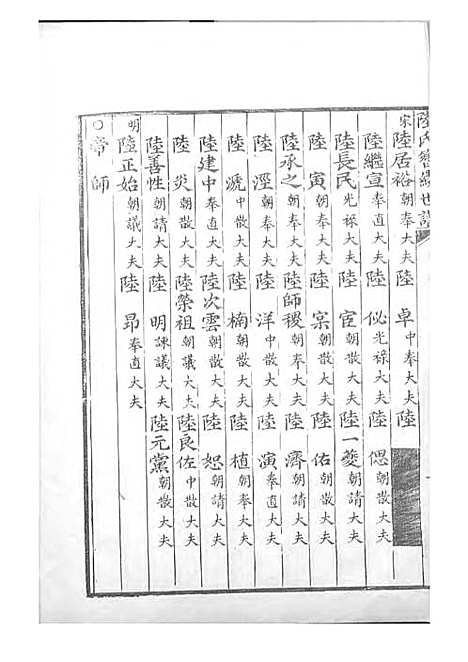 陸氏 世譜
宋 陸居裕 朝奉大夫 陸卓 中奉大夫 陸
陸繼宣 奉直大夫 陸似 光祿大夫 陸偲 朝散大夫
陸長民 光祿大夫 陸宦 朝散大夫 陸一夔 朝請大夫
陸寅 朝散大夫 陸寀 朝散大夫 陸佑 朝散大夫
陸承之 朝散大夫 陸師稷 朝奉大夫 陸濟 朝請大夫
陸淫 朝奉大夫 陸洋 中散大夫 陸演 奉直大夫
陸淲 中散大夫 陸楠 朝散大夫 陸植 朝奉大夫
陸建中 奉直大夫 陸次雲 朝散大夫 陸恕 朝請大夫
陸炎 朝散大夫 陸榮祖 朝議大夫 陸良佐 中散大夫
陸善性 朝請大夫 陸明 諫議大夫 陸元黨 朝散大夫
明 陸正始 朝議大夫 陸昂 奉直大夫
○帝師